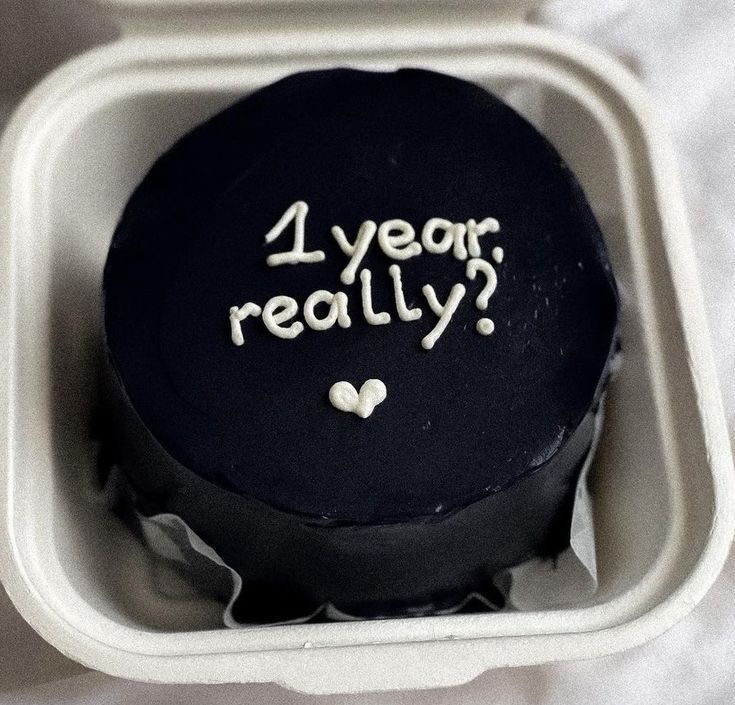 1 year,
really?